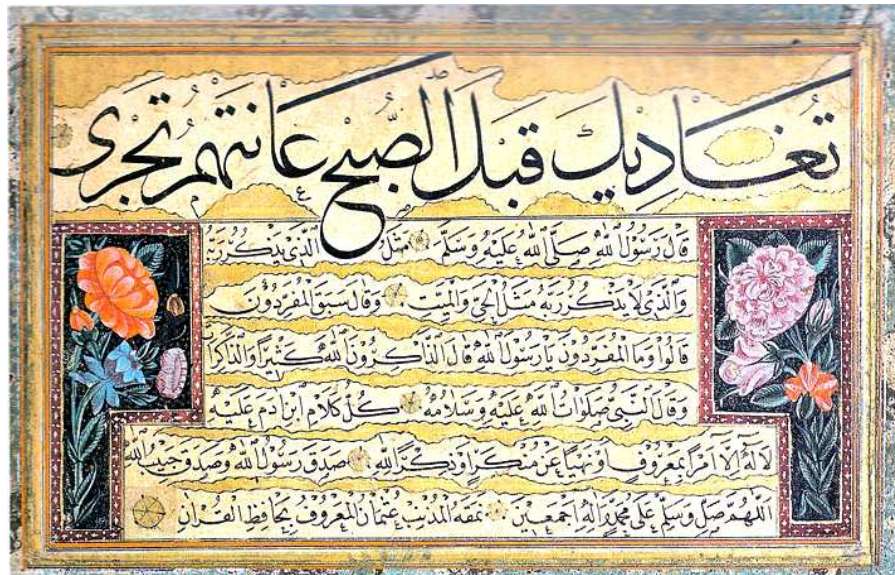 تُغَادِيكَ قَبْلَ الصُّبْحِ عَانَتُهُمْ تَجْرِى
قَالَ رَسُولُ اللهِ صَلَّى اللهُ عَلَيْهِ وَسَلَّمَ مَثَلُ الَّذِى يَذْكُرُ رَبَّهُ
وَالَّذِى لَا يَذْكُرُ رَبَّهُ مَثَلُ الْحَىِّ وَالْمَيِّتِ وَقَالَ سَبَقَ الْمُفَرِّدُونَ
قَالُوا وَمَا الْمُفَرِّدُونَ يَا رَسُولَ اللهِ قَالَ الذَّاكِرُونَ اللهَ كَثِيرًا وَالذَّاكِرَا
وَقَالَ النَّبِىُّ صَلَوَاتُ اللهِ عَلَيْهِ وَسَلَامُهُ كُلُّ كَلَامِ ابْنِ اٰدَمَ عَلَيْهِ
لَا لَهُ اِلَّا اَمْرًا بِمَعْرُوفٍ اَوْ نَهْيًا عَنْ مُنْكَرٍ اَوْ ذِكْرًا لِلّٰهِ صَدَقَ رَسُولُ اللهِ وَصَدَقَ حَبِيبُ اللهِ
اَللّٰهُمَّ صَلِّ وَسَلِّمْ عَلَى مُحَمَّدٍ وَاٰلِهِ اَجْمَعِينَ نَمَقَهُ الْمُذْنِبُ عُثْمَانُ الْمَعْرُوفُ بِحَافِظِ الْقُرْاٰنِ